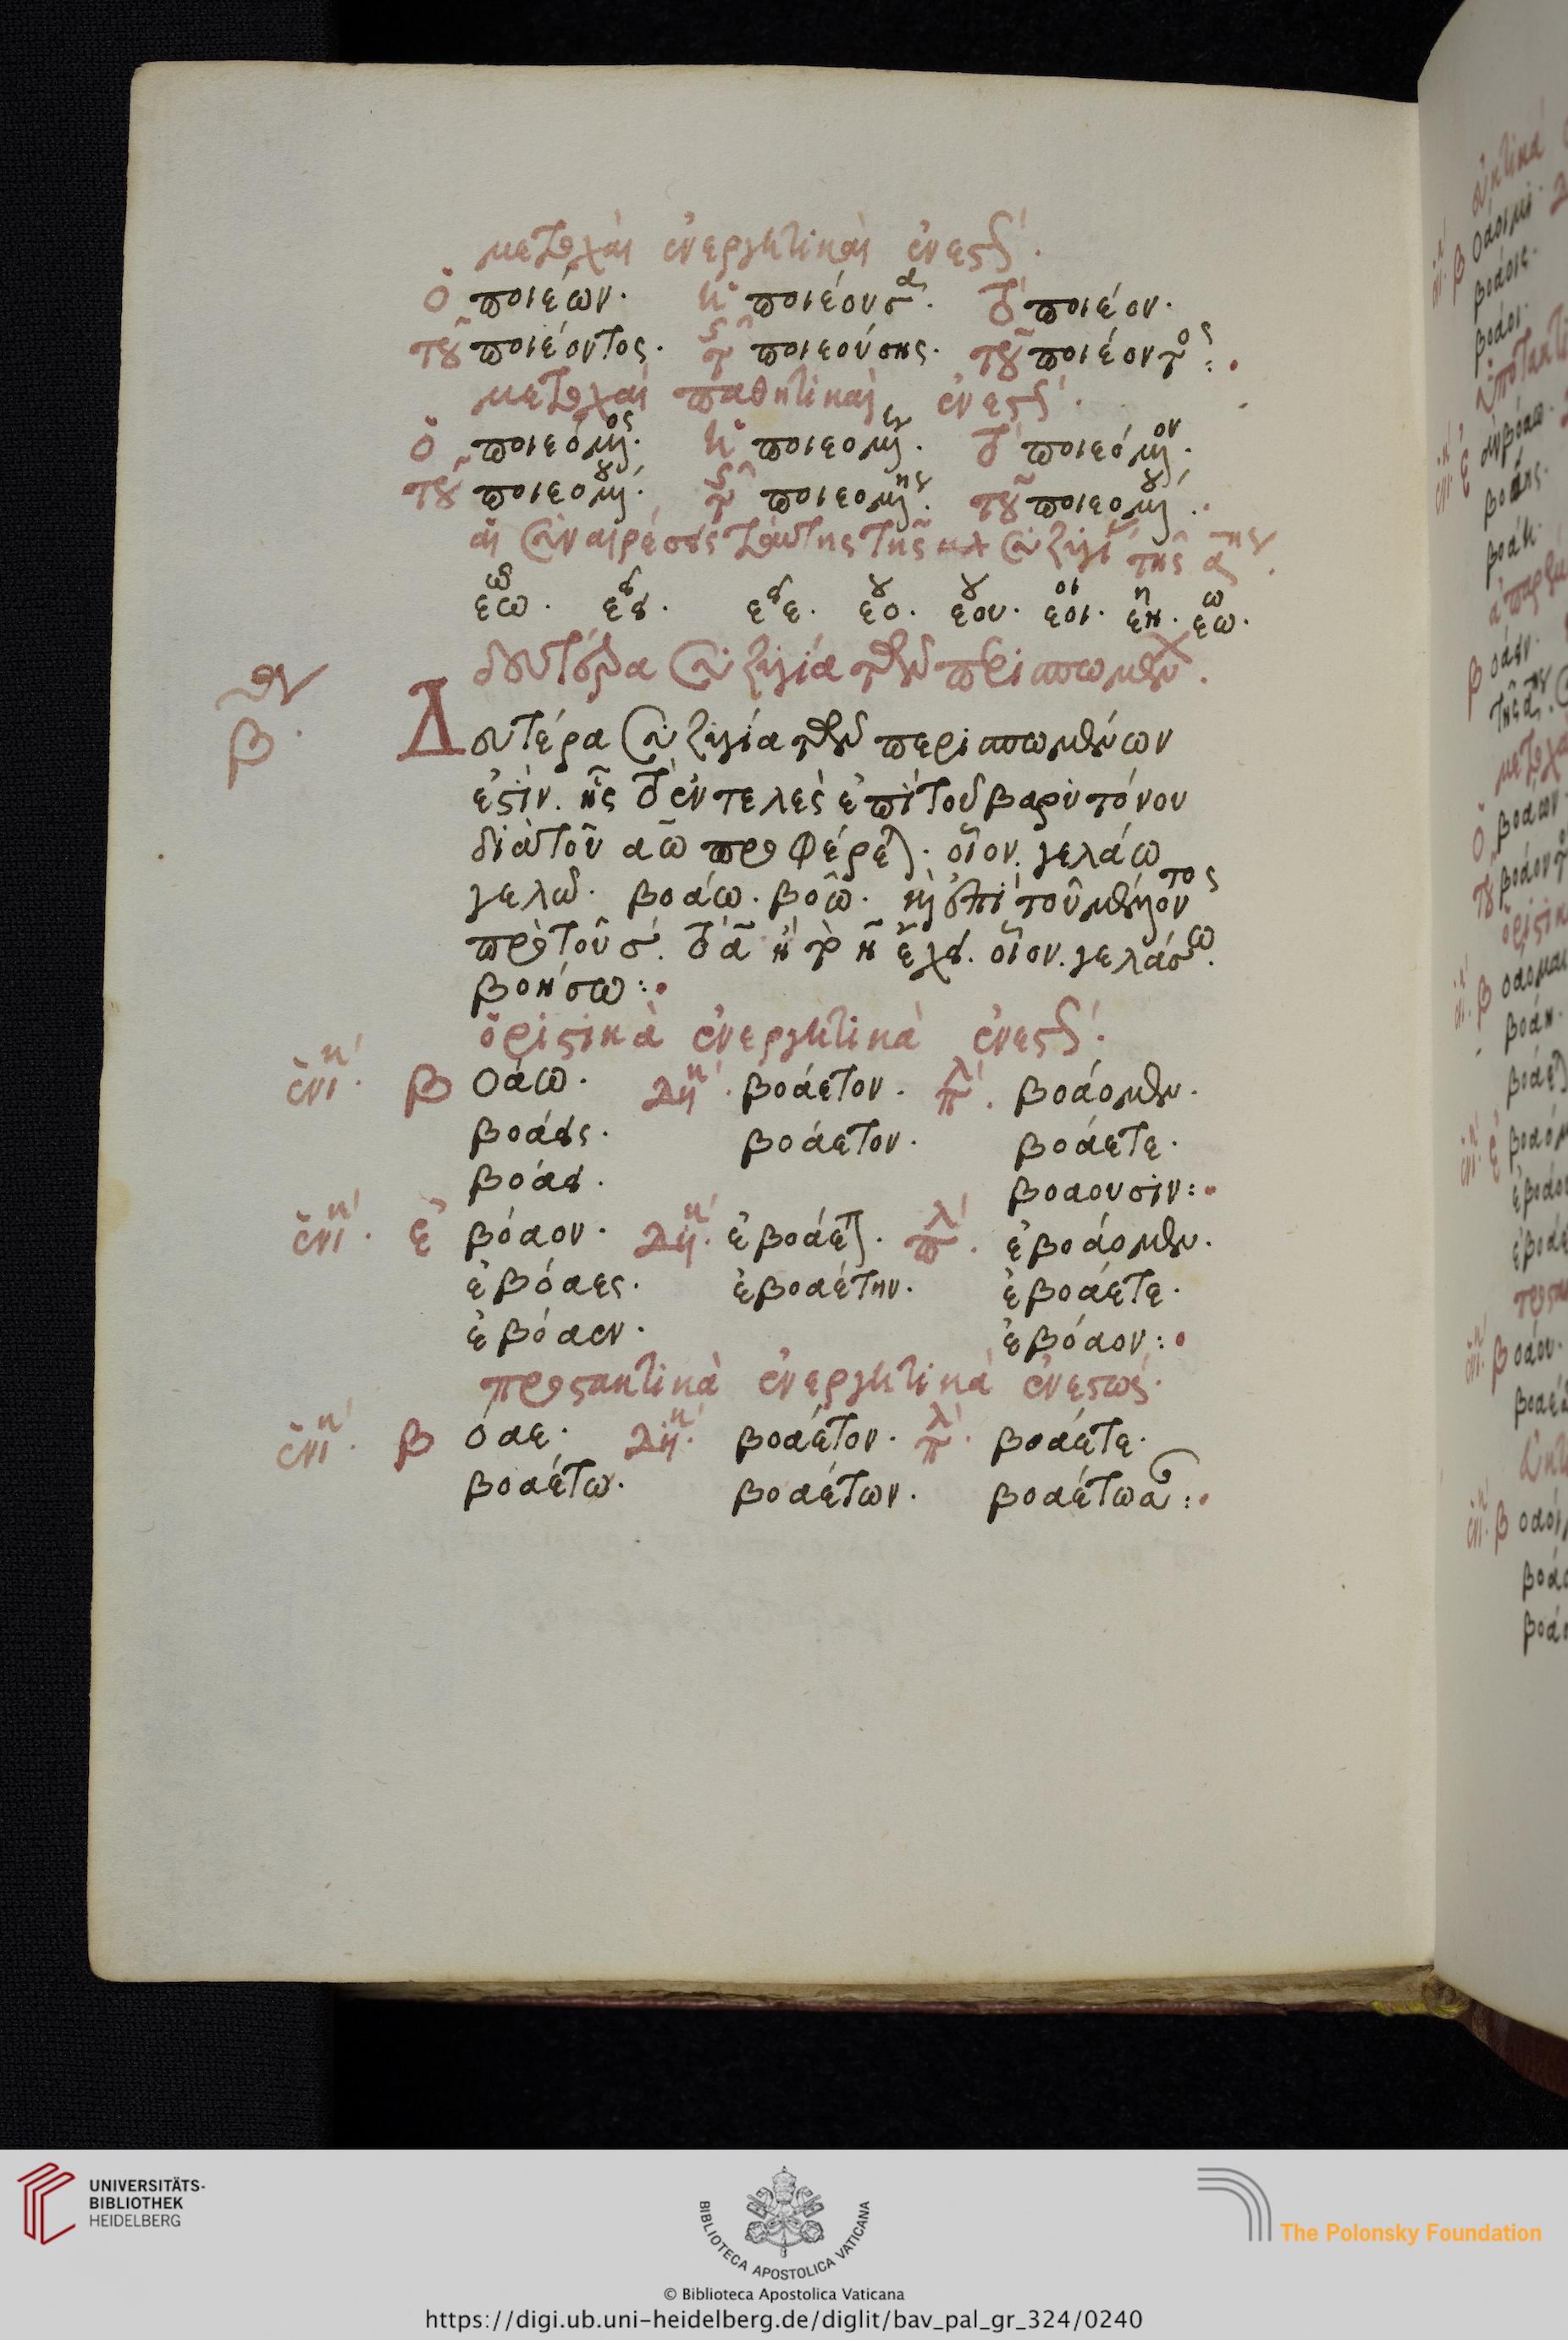 μετοχαὶ ἐνεργητικαὶ ἐνεστ
ὁ ποιέων. ἡ ποιέουσα. τὸ ποιέον.
τοῦ ποιέοντος. τῆς ποιεούσης. τοῦ ποιέοντος:
μετοχαὶ παθητικαὶ ἐνεστ
ὁ ποιεόμενος. ἡ ποιεομένη. τὸ ποιεόμενον.
τοῦ ποιεομένου. τῆς ποιεομένης. τοῦ ποιεομένου.
αἱ συναιρέσεις ταύτης τῆς συζυγί
εω ω. εει ει. εε ει. εο ου. εου ου. εοι οι. εη η. εω ω.
δευτέρα συζυγία τῶν περισπωμένων.
β.
Δευτέρα συζυγία τῶν περισπωμένων
ἐστὶν. ἧς τὸ ἐντελὲς ἐπὶ τοῦ βαρυτόνου
διὰ τοῦ αω προφέρεται. οἷον. γελάω
γελῶ. βοάω. βοῶ. καὶ ἐπὶ τοῦ μέλλοντος
πρὸ τοῦ σ. τὸ α ἢ τὸ η ἔχει. οἷον. γελάσω.
βοήσω:
ὁριστικὰ ἐνεργητικὰ ἐνεστ
ἑνικ. βοάω. δυικ. βοάετον. πλ. βοάομεν.
βοάεις. βοάετον. βοάετε.
βοάει. βοαουσιν:
ἑνικ. ἐβόαον. δυικ. ἐβοάετον. πλ. ἐβοάομεν.
ἐβόαες. ἐβοαέτην. ἐβοάετε.
ἐβόαεν. ἐβόαον:
προστακτικὰ ἐνεργητικὰ ἐνεστώς.
ἑνικ. βόαε. δυικ. βοάετον. πλ. βοάετε.
βοαέτω. βοαέτων. βοαέτωσαν:
UNIVERSITÄTS-
BIBLIOTHEK
HEIDELBERG
BIBLIOTECA APOSTOLICA VATICANA
© Biblioteca Apostolica Vaticana
The Polonsky Foundation
https://digi.ub.uni-heidelberg.de/diglit/bav_pal_gr_324/0240